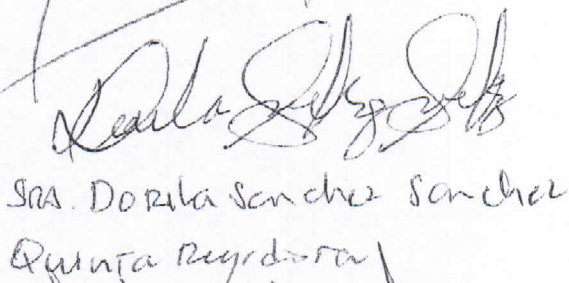 SRA. DoRila Sanchez Sanchez
Quinta Regidora